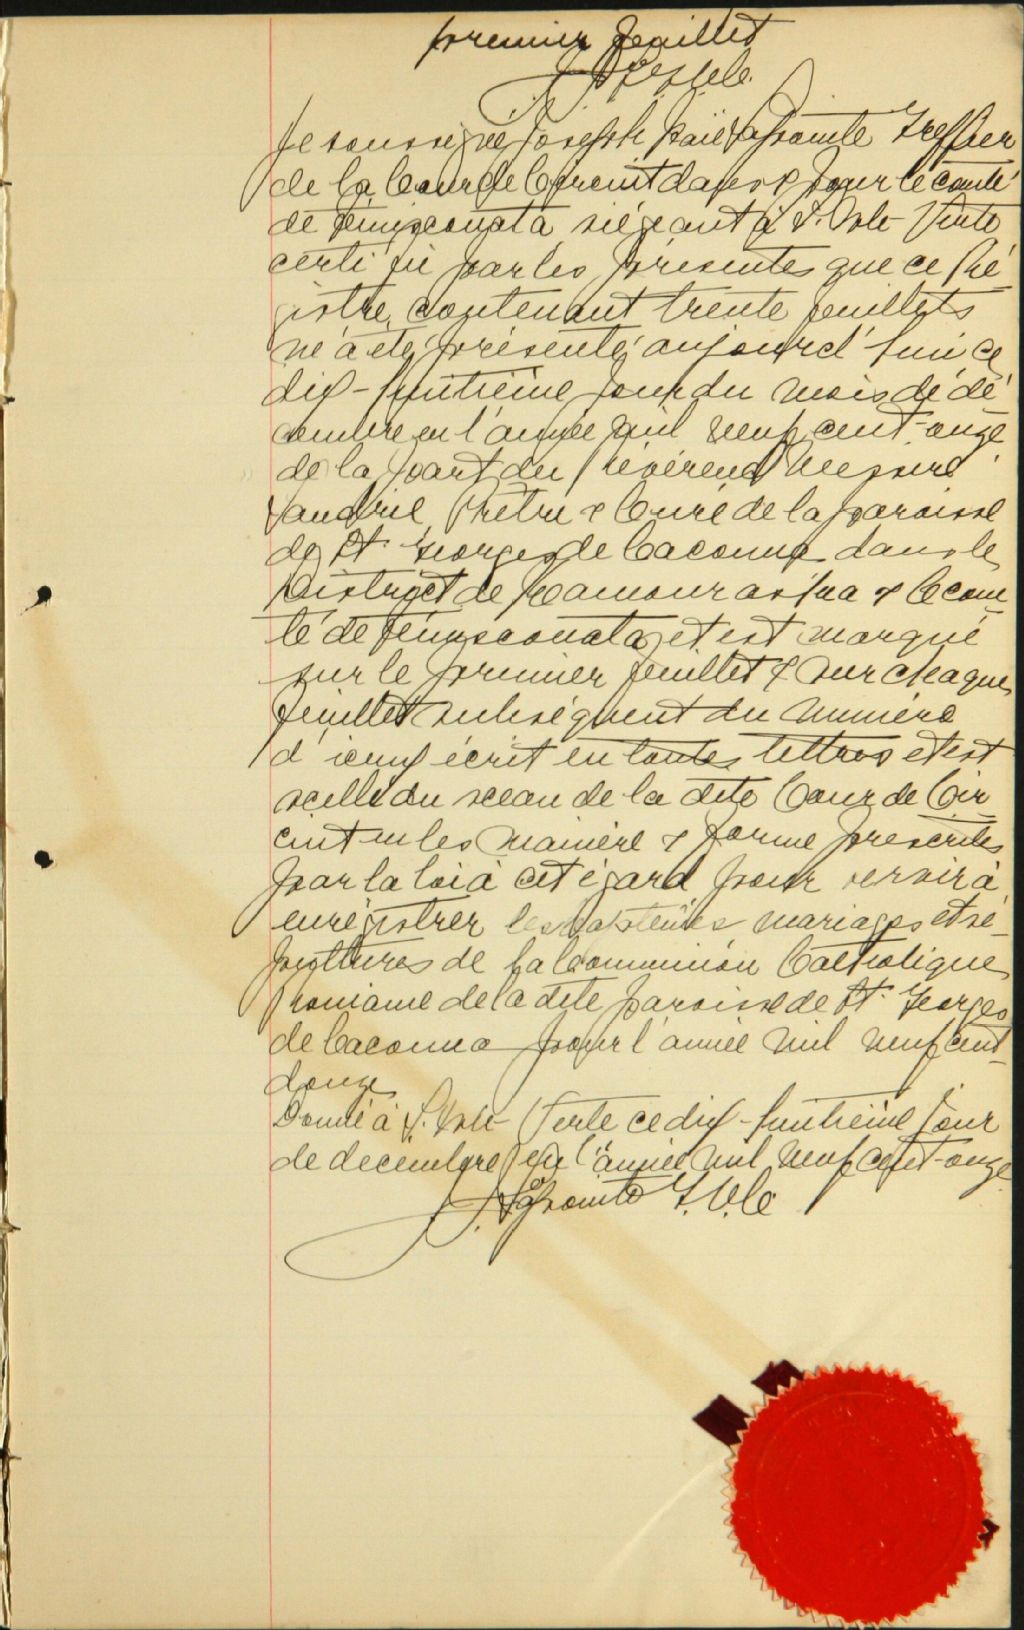 premier feuillet
Je soussigné Joseph Lapointe Greffier
de la Cour de Circuit dans & pour le comté
de Témiscouata siégeant à L'Isle Verte
certifie par les présentes que ce Ré
gistre contenant trente feuillets
m'a été présenté aujourd'hui ce
dix-huitième jour du mois de dé
cembre en l'année mil neuf cent-onze
de la part du révérend Messire
Prêtre & Curé de la paroisse
de St. Georges de Cacouna dans le
District de Kamouraska & le com
té de Témiscouata et est marqué
sur le premier feuillet & sur chaque
feuillet subséquent du numéro
d'iceux écrit en toutes lettres et est
scellé du sceau de la dite Cour de Cir
cuit en les manière & forme prescrites
par la loi à cet égard pour servir à
enrégistrer les baptêmes mariages et sé
pultures de la Communion Catholique
romaine de la dite paroisse de St. Georges
de Cacouna pour l'année mil neuf cent
douze
Donné à L'Isle-Verte ce dix-huitième jour
de decembre en l'année mil neuf cent-onze
J. Lapointe